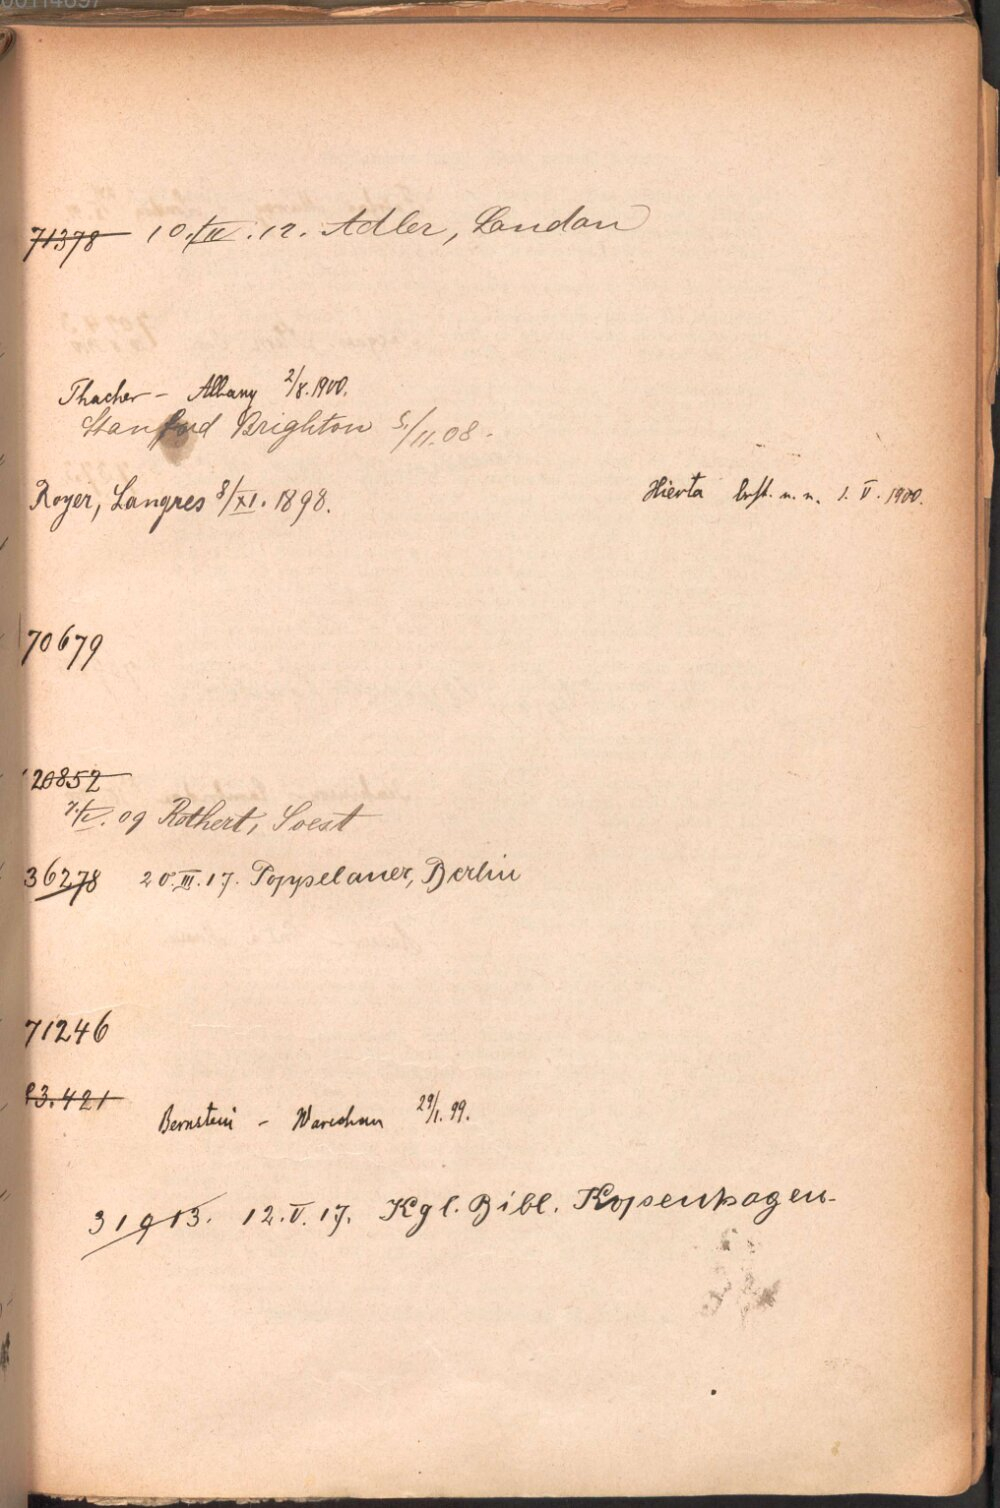 00114697
71378 10. . 12. Adler, Landau
Thacher – Albany 2/8. 1900.
Stanford Brighton 5/11. 08.
Royer, Langres 8/XI. 1898.
Hierta 1. V. 1900.
70679
20852
09 Rothert, Soest
36278 20. III. 17. Poppelauer, Berlin
71246
3.421
Bernstein – Warschau 29/1. 99.
31913. 12. V. 17. Kgl. Bibl. Kopenhagen